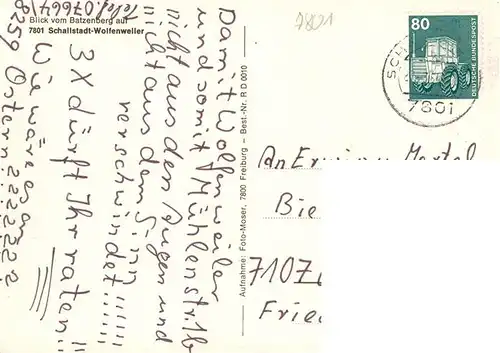 Blick vom Batzenberg auf
7801 Schallstadt-Wolfenweiler
7801
Damit Wolfenweiler
und somit Mühlenstr. 1b
nicht aus den Augen und
nicht aus dem Sinn
verschwindet!!!!!!
3x dürft Ihr raten!!!
Wie wäre es an
Ostern???????
Aufnahme: Foto-Moser, 7800 Freiburg – Best.-Nr. R D 0010
80
DEUTSCHE BUNDESPOST
7801
An Erwin
Bie
7107
Frie